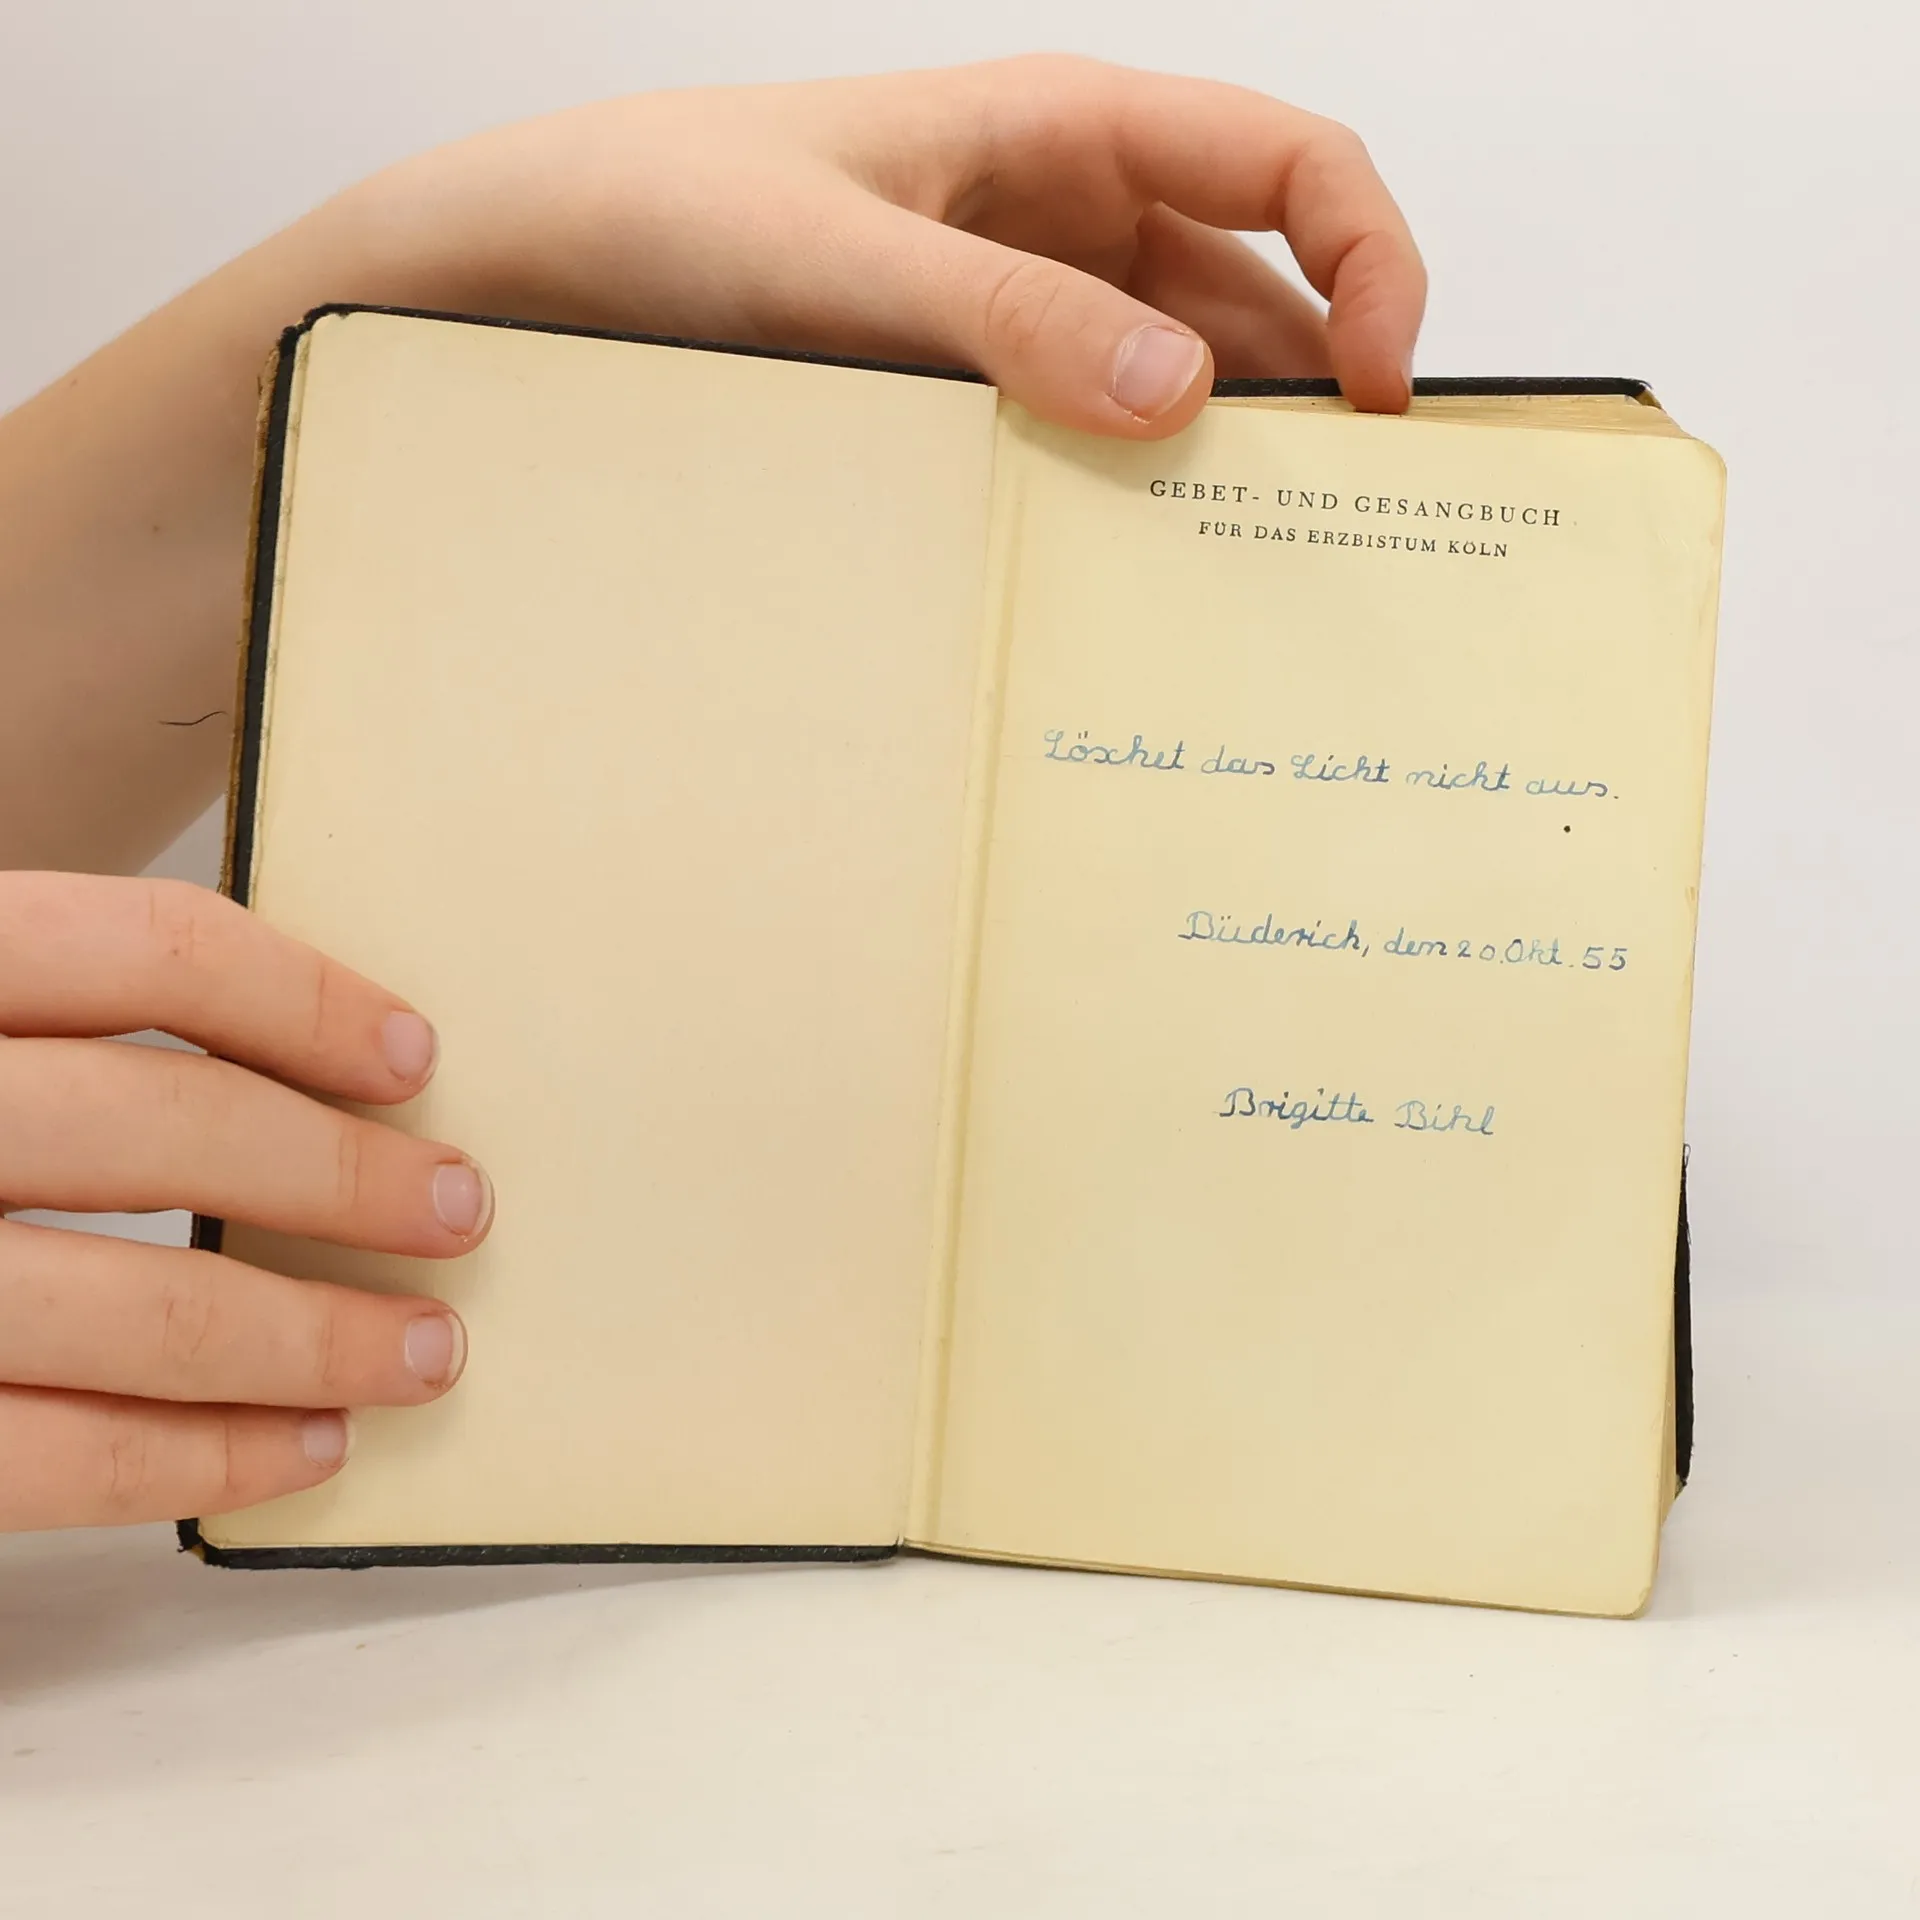 GEBET- UND GESANGBUCH
FÜR DAS ERZBISTUM KÖLN
Löschet das Licht nicht aus.
Büderich, den 20. Okt. 55
Brigitte Bihl